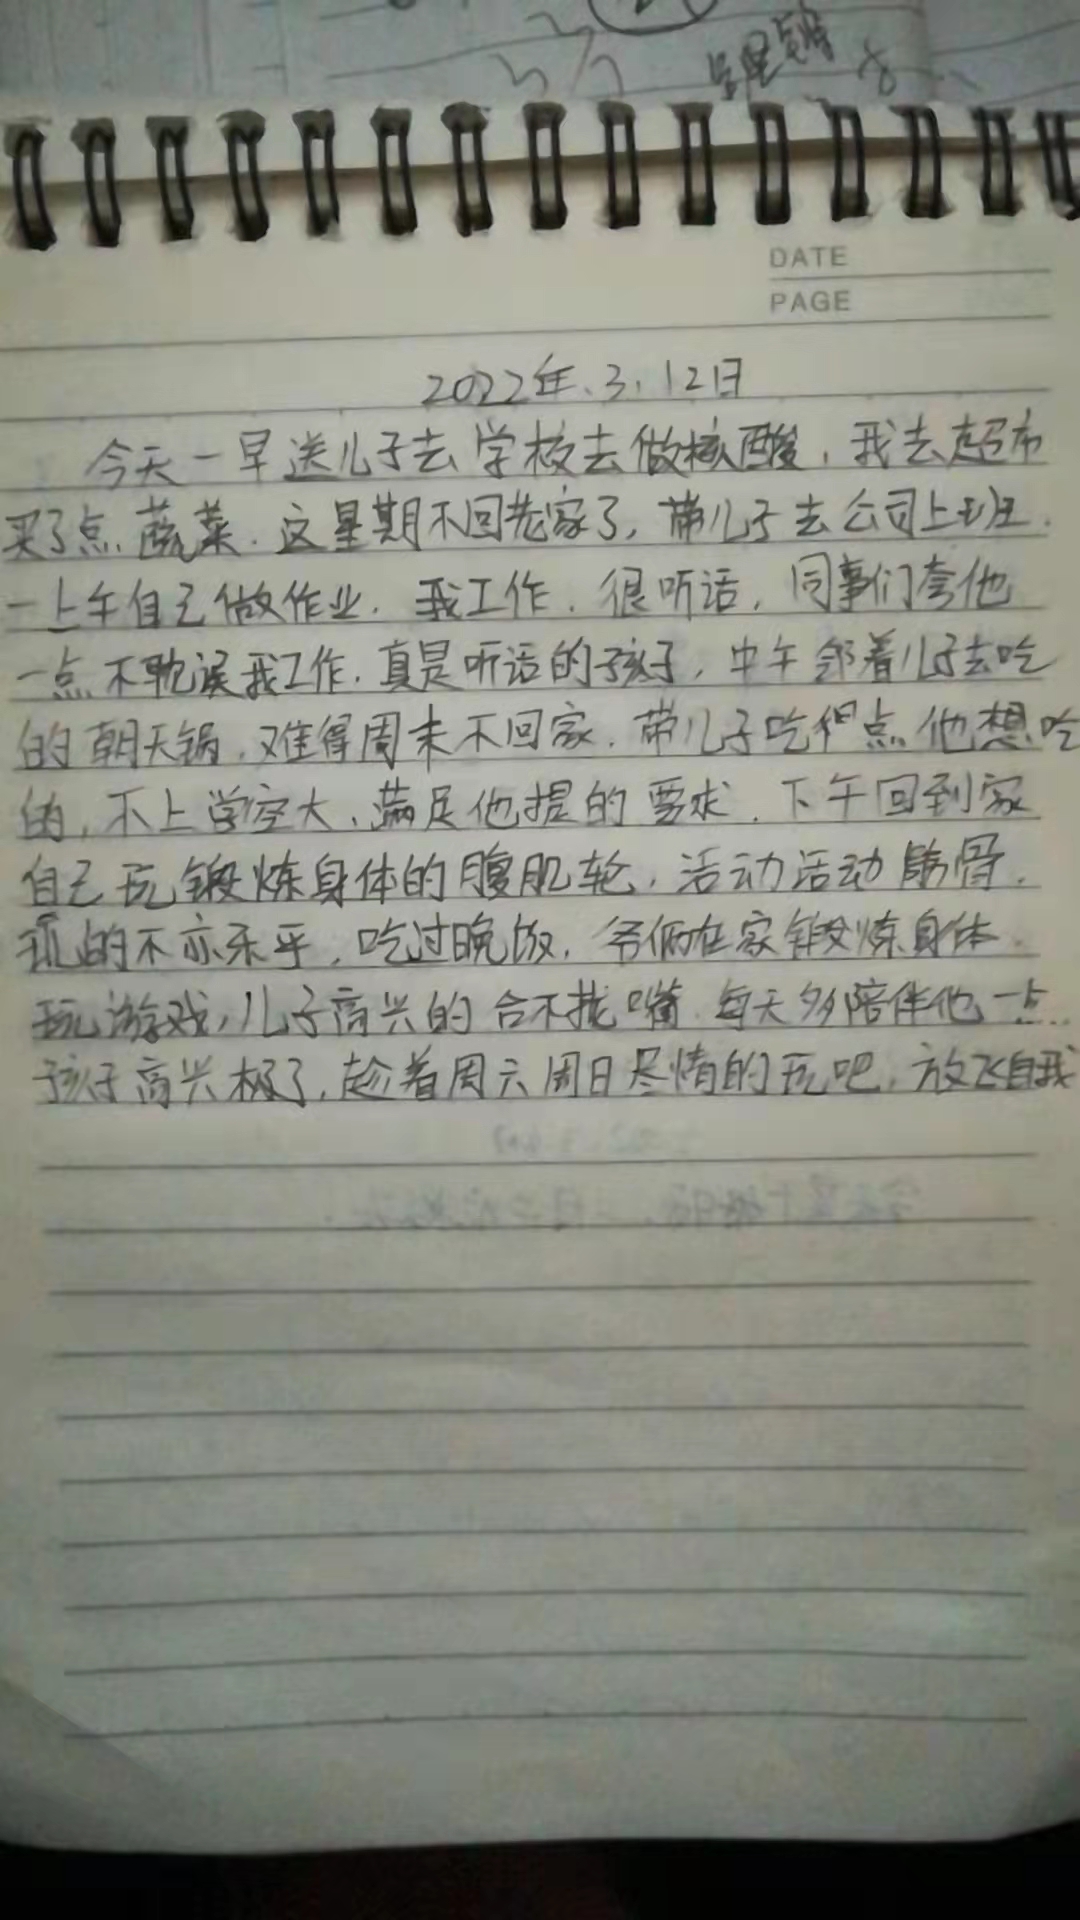 DATE
PAGE
2022年.3.12日
今天一早送儿子去学校去做核酸，我去超市
买了点蔬菜.这星期不回老家了，带儿子去公司上班.
一上午自己做作业.我工作.很听话，同事们夸他
一点不耽误我工作.真是听话的孩子，中午领着儿子去吃
的朝天锅.难得周末不回家.带儿子吃他想吃
的，不上学空大、满足他提的要求.下午回到家
自己玩锻炼身体的腹肌轮.活动活动骨.
玩的不亦乐乎，吃过晚饭，爷俩在家锻炼身体.
玩游戏，儿子高兴的合不拢嘴.每天多陪伴他一点.
孩子高兴极了，趁着周六周日尽情的玩吧.放飞自我